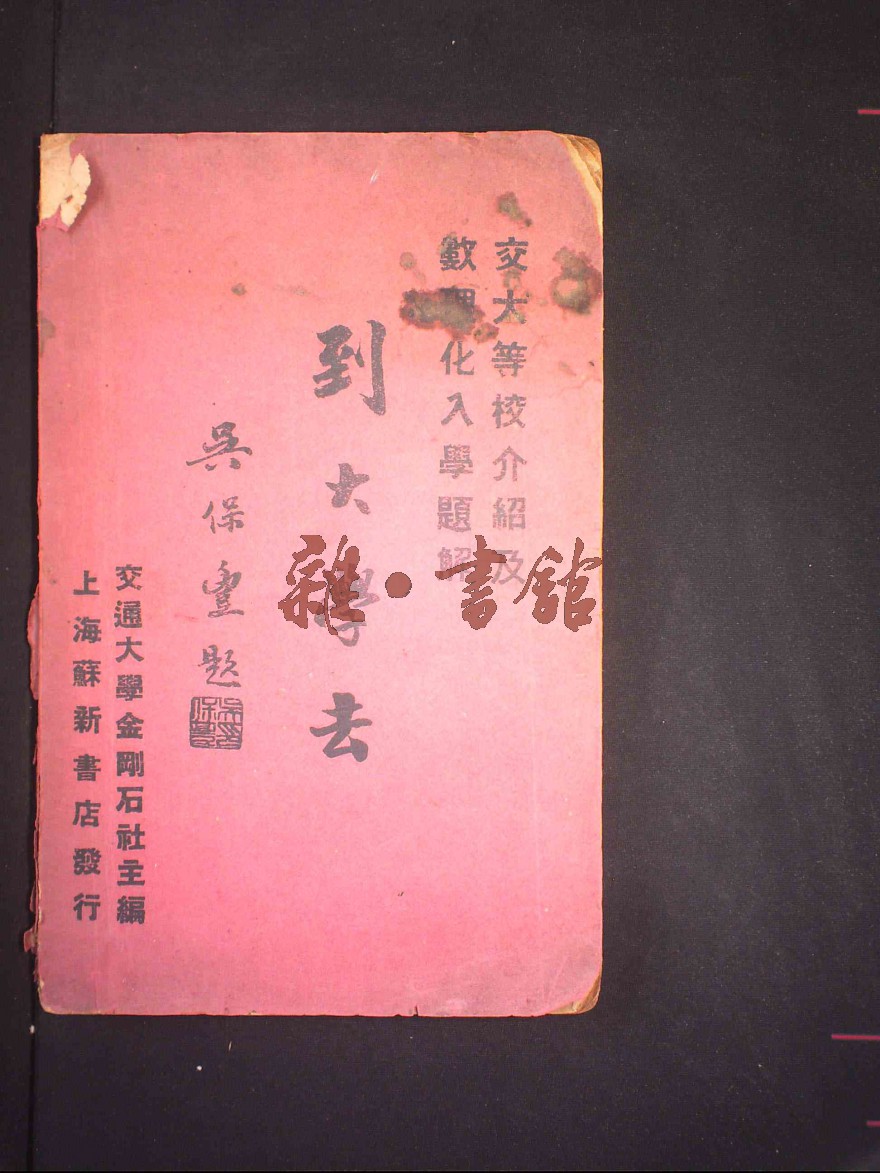 交大等校介紹及
數理化入學題解
到大學去
吳保豐題
吳保豐
交通大學金剛石社主編
上海蘇新書店發行
雜·書館